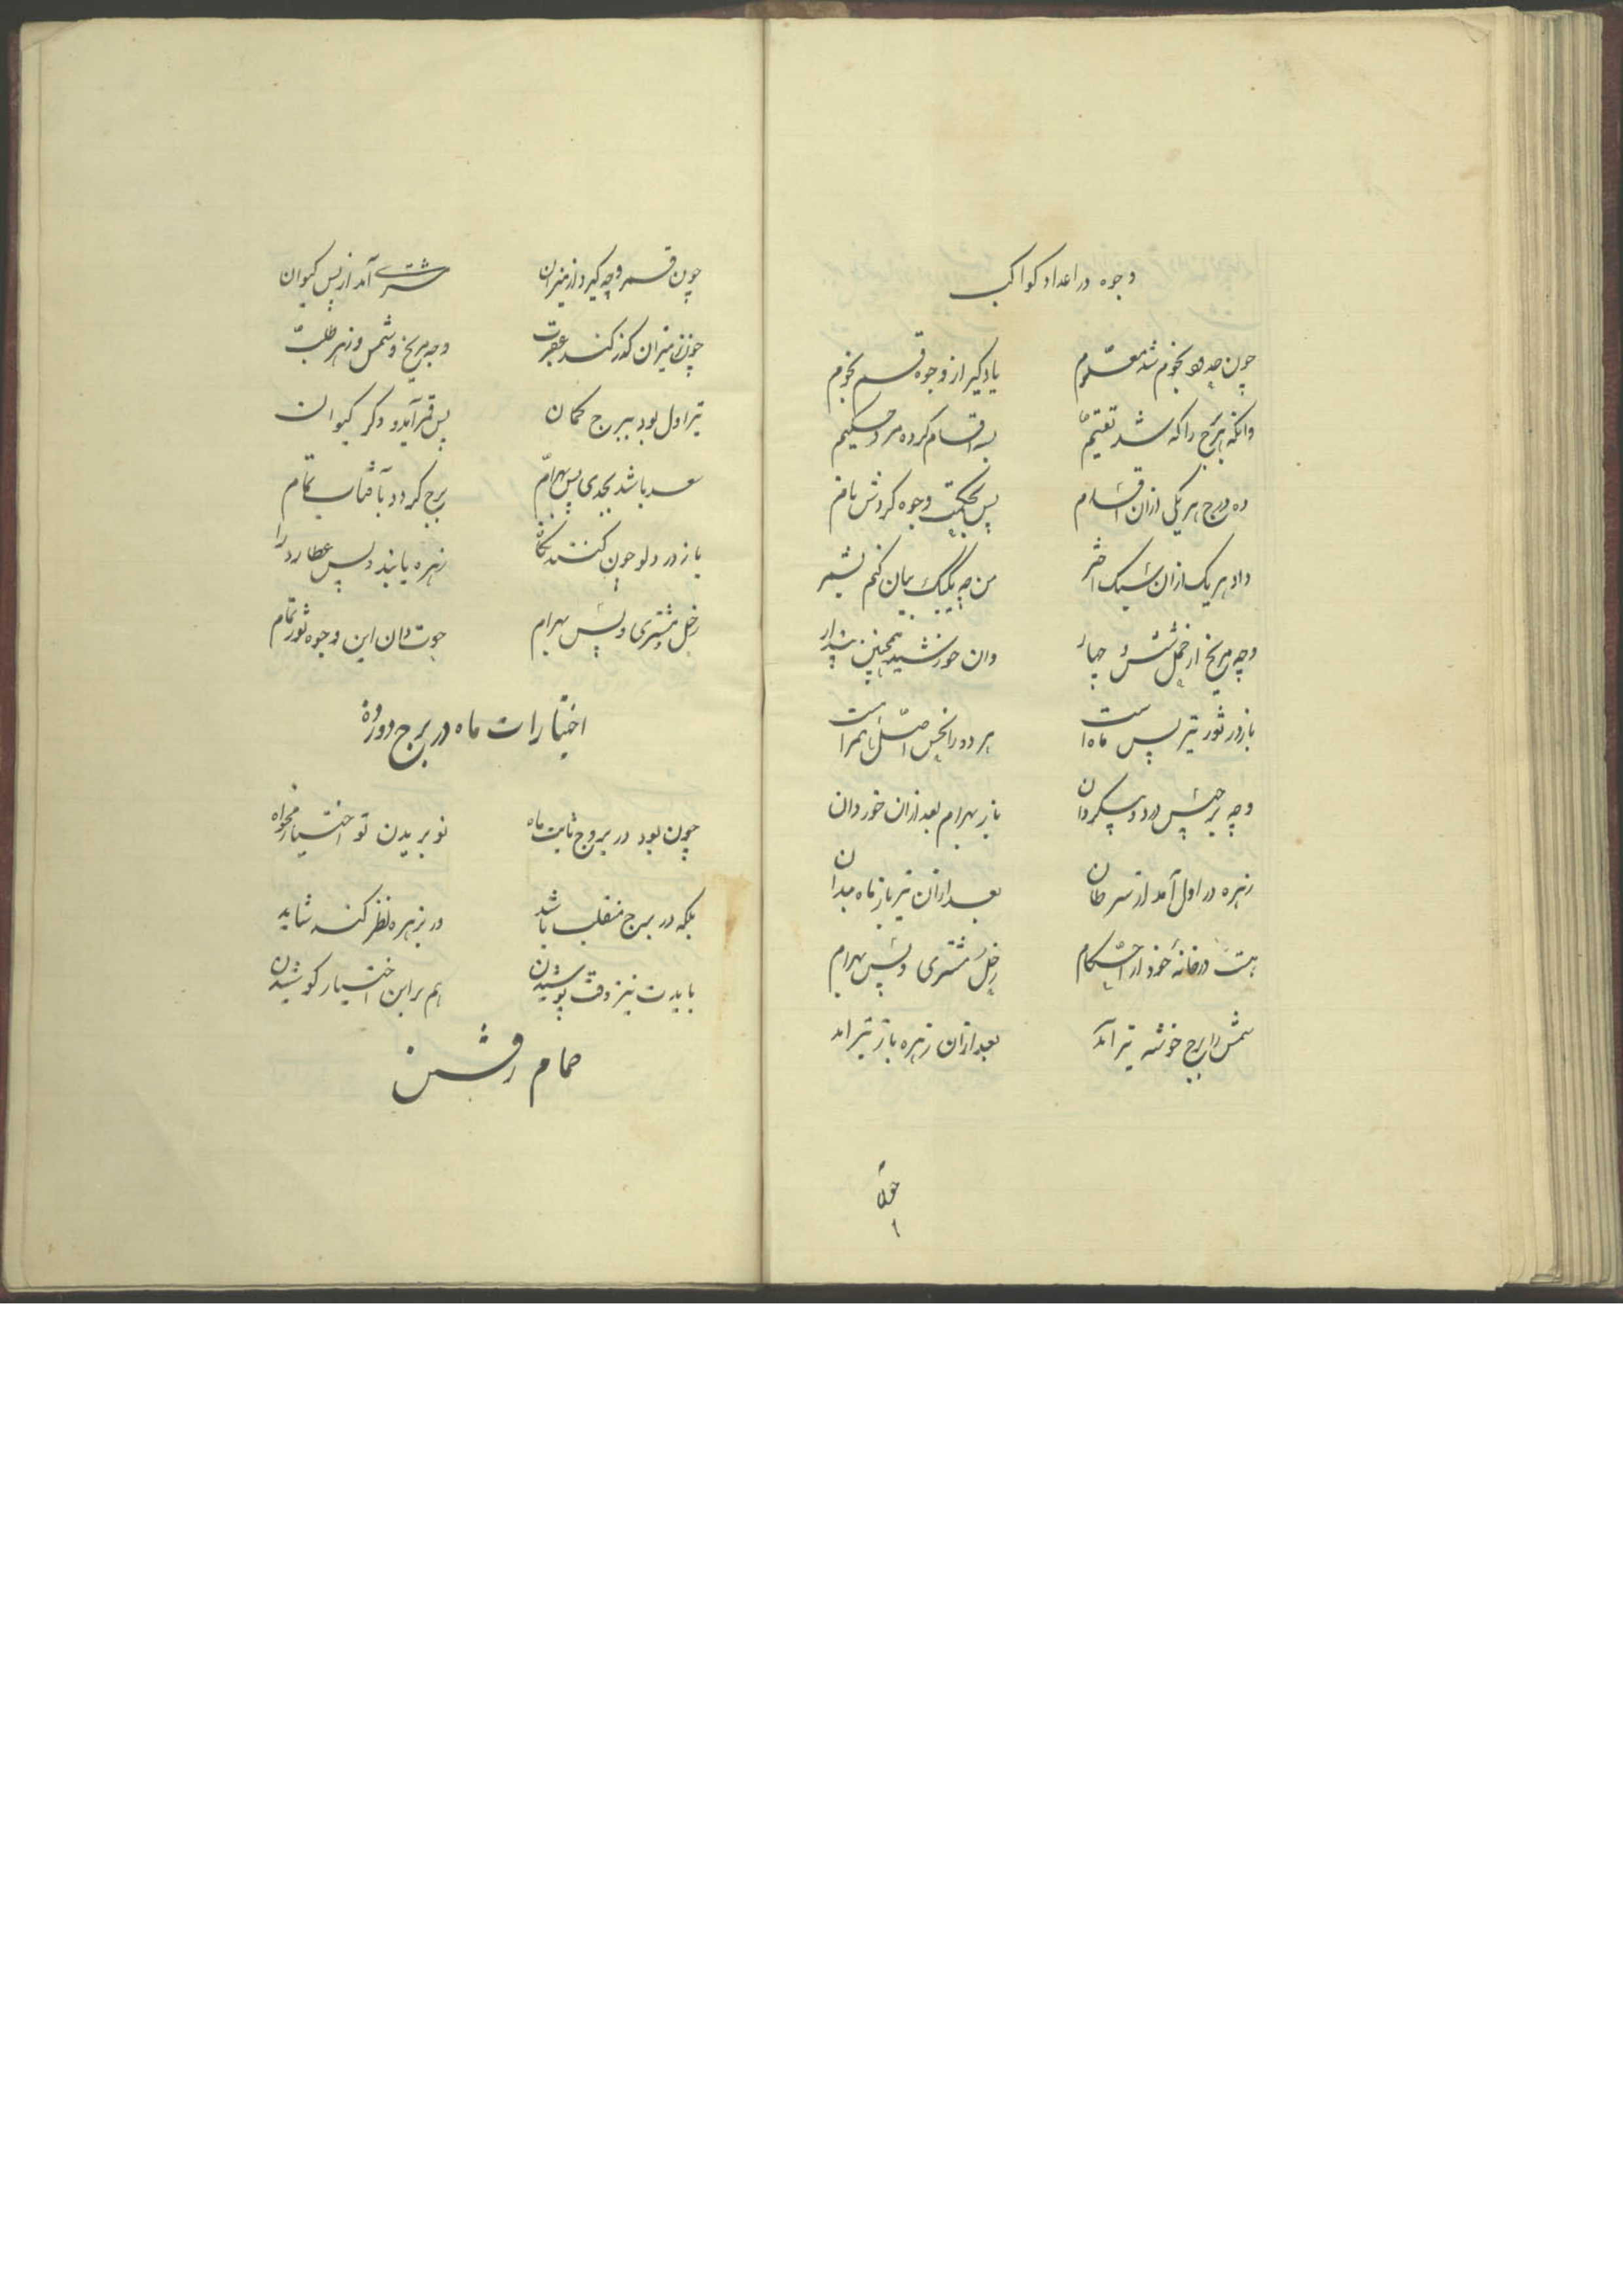 وجوه در اعداد کواکب
چون حدود نجوم شد معلوم یاد گیر از وجوه قسم نجوم
وانکه هر برج را که شد تقسیم سه اقسام کرده مرد حکیم
ده درج هر یکی ازان اقسام پس بحکمت وجوه کردش نام
داد هر یک ازان بیک اختر من چه یک یک بیان کنم بشمر
وجه مریخ از حمل شش و چهار وان خورشید همچنین پندار
باز در ثور تیر پس ماه است هر دو را نحس اصل همراه است
وجه برجیس در دو پیکر دان باز بهرام بعد ازان خور دان
زهره در اول آمد از سرطان بعد ازان تیر باز ماه بدان
هست در خانه خود از احکام زحل و مشتری و پس بهرام
شمس را برج خوشه تیر آمد بعد ازان زهره باز تیر امد
چون
چون قمر وجه گیرد از میزان مشتری آمد از پس کیوان
چون ز میزان گذر کند عقرب وجه مریخ و شمس و زهره طلب
تیر اول بود ببرج کمان پس قمر آمد و دگر کیوان
سعد باشد بجدی پس بهرام برج گردد بآفتاب تمام
باز در دلو چون کنند نگاه زهره یابند و پس عطارد را
زحل و مشتری و پس بهرام حوت دان این وجوه ثور تمام
اختیارات ماه در برج دوازده
چون بود در بروج ثابت ماه نو بریدن تو اختیار مخواه
بلکه در برج منقلب باشد ور بزهره نظر کند شاید
بایدت نیز وقت پوشیدن هم بر این اختیار کوشیدن
حمام رفتن